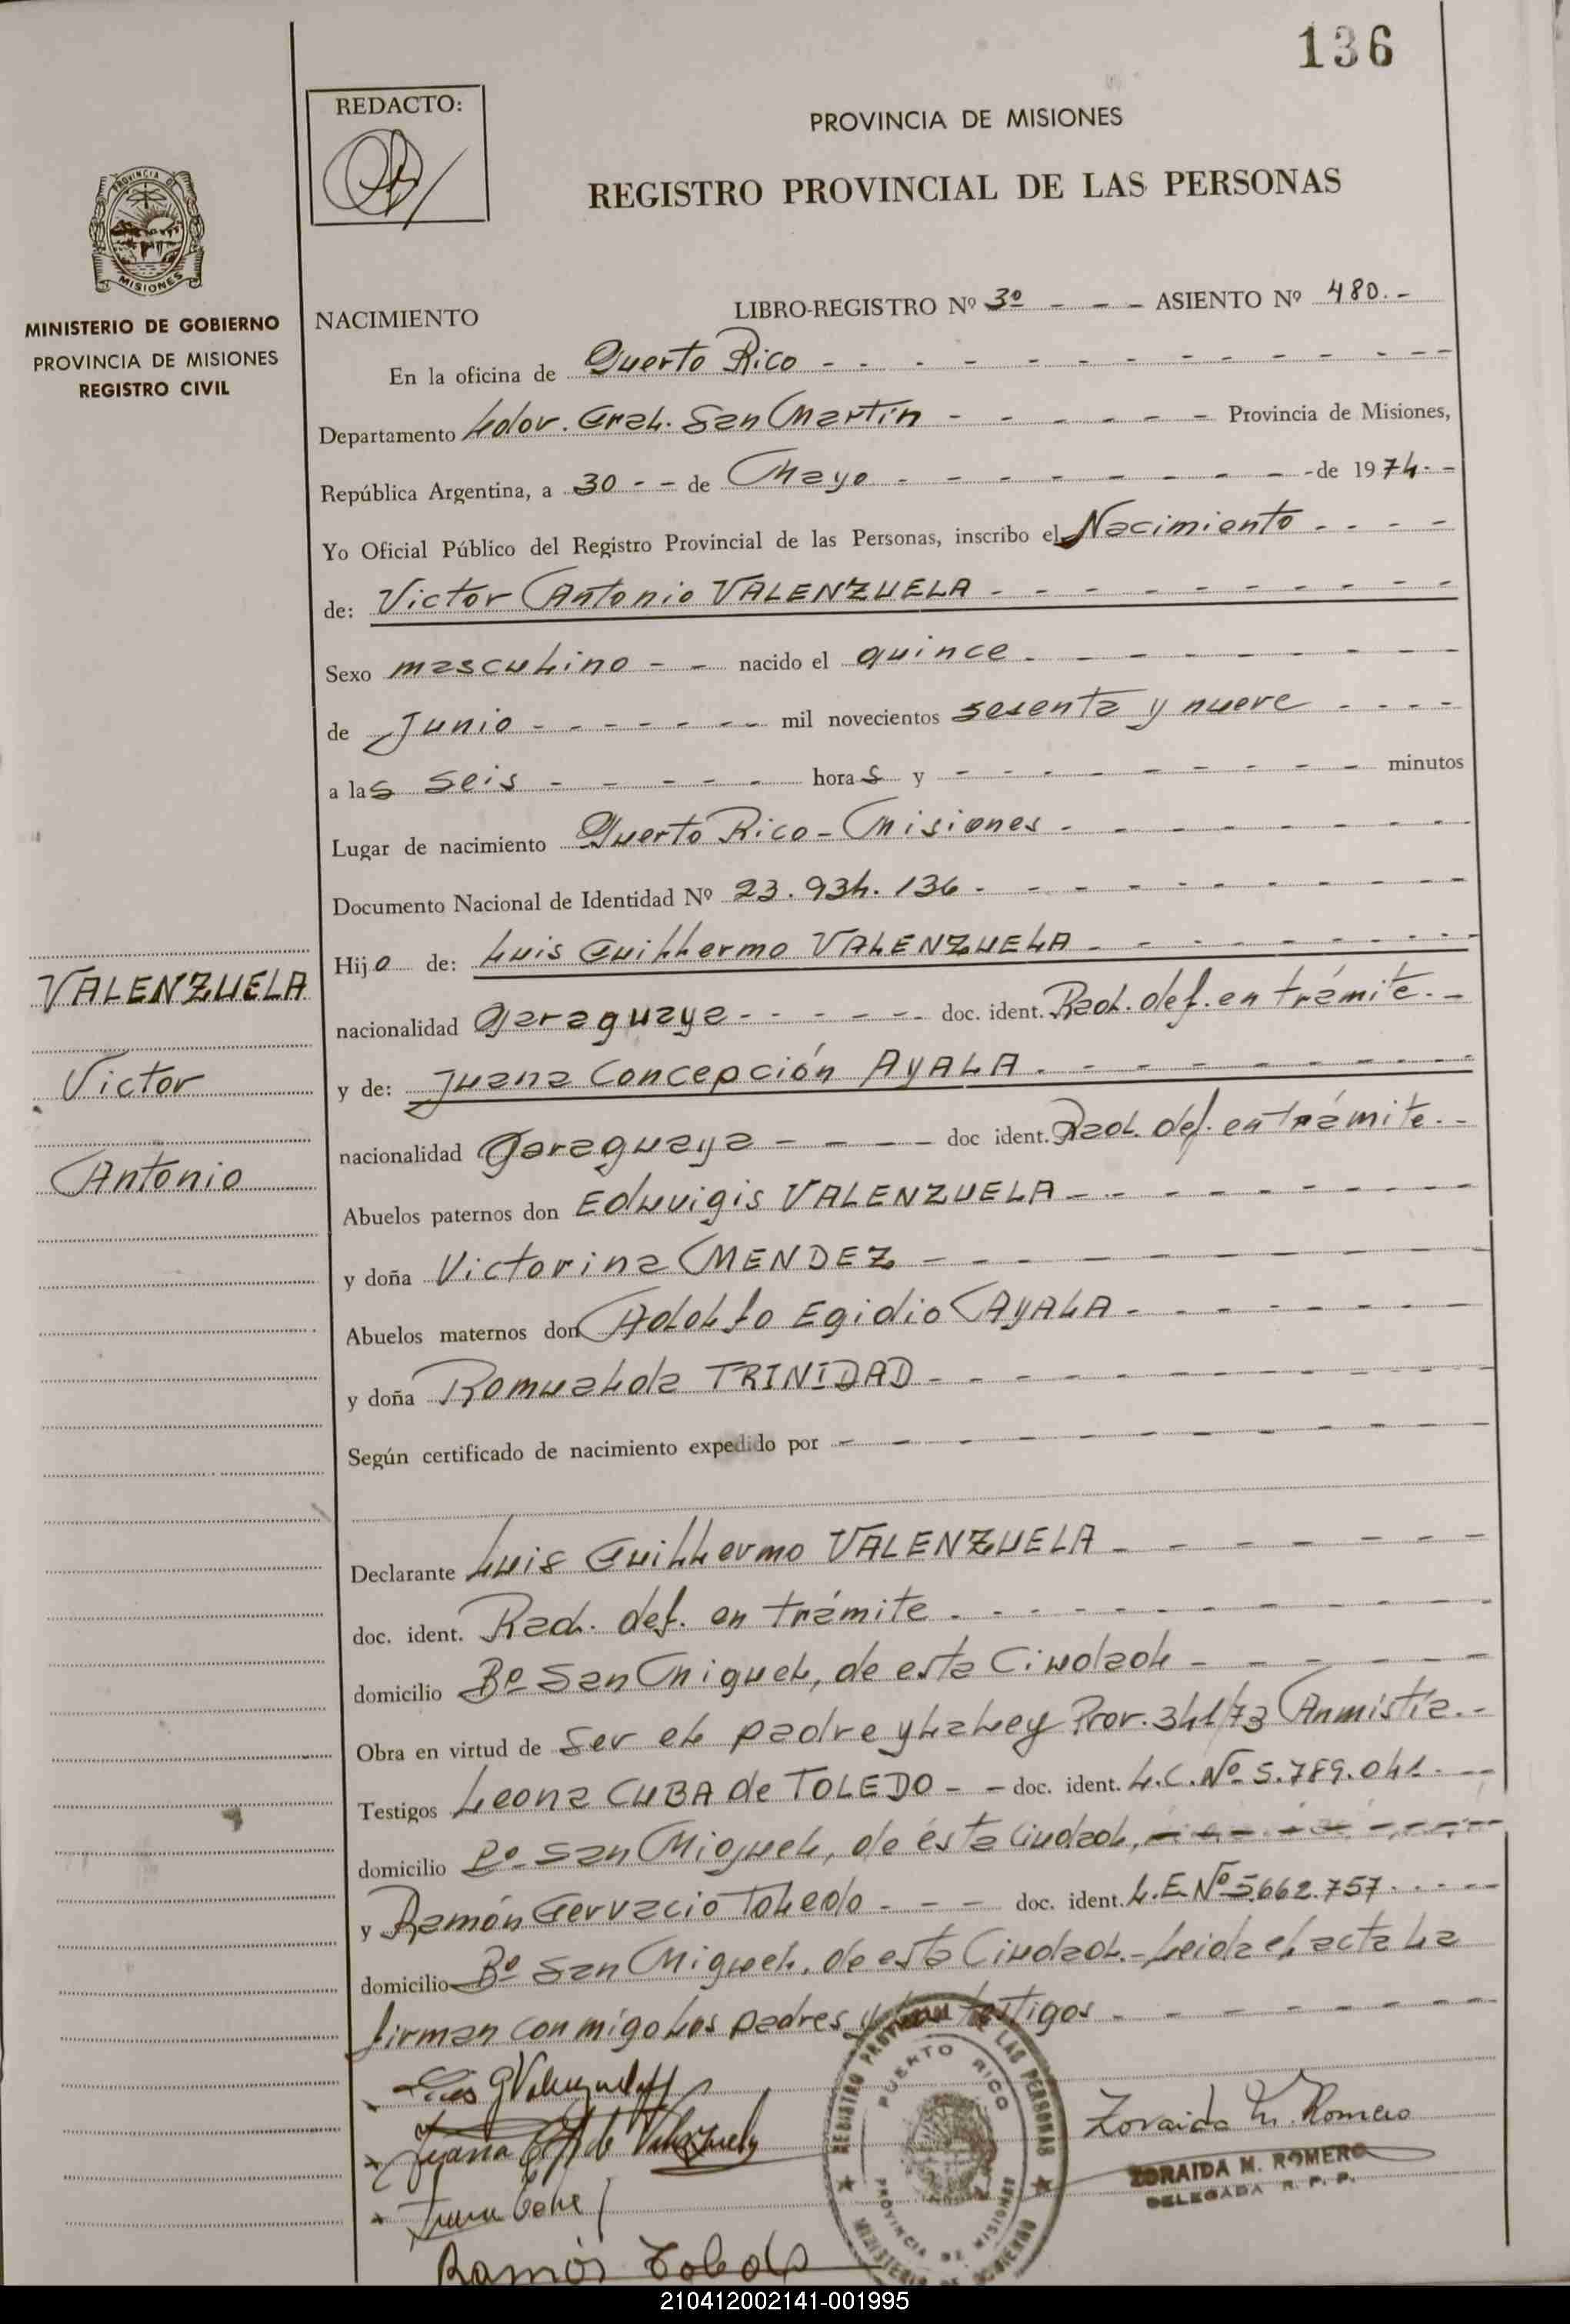 136
REDACTO:
PROVINCIA DE MISIONES
REGISTRO PROVINCIAL DE LAS PERSONAS
PROVINCIA DE
MISIONES
MINISTERIO DE GOBIERNO
PROVINCIA DE MISIONES
REGISTRO CIVIL
NACIMIENTO LIBRO-REGISTRO Nº 3º - - - ASIENTO Nº 480.-
En la oficina de Puerto Rico - - - - - - - - - - - -
Departamento Ldor. Gral. San Martín - - - - - - Provincia de Misiones,
República Argentina, a 30 - - de Mayo - - - - - - - - - de 1974 - -
Yo Oficial Público del Registro Provincial de las Personas, inscribo el Nacimiento - - - -
de: Victor Antonio VALENZUELA - - - - - - - - -
Sexo masculino - - nacido el quince - - - - - - - - -
de Junio - - - - - - - mil novecientos sesenta y nueve - - - -
a las seis - - - - - horas y - - - - - - - - - minutos
Lugar de nacimiento Puerto Rico - Misiones - - - - - - - - -
Documento Nacional de Identidad Nº 23.934.136 - - - - - - - - - - -
Hijo de: Luis Guillermo VALENZUELA - - - - - - - - -
nacionalidad paraguaya - - - - - - doc. ident. Rad. def. en trámite. -
y de: Juana Concepción AYALA - - - - - - - - - -
nacionalidad paraguaya - - - - doc ident. Rad. def. en trámite. -
Abuelos paternos don Eduvigis VALENZUELA - - - - - - - - -
y doña Victorina MENDEZ - - - - - - - - -
Abuelos maternos don Adolfo Egidio AYALA - - - - - - - -
y doña Romualda TRINIDAD - - - - - - - - - - -
Según certificado de nacimiento expedido por - - - - - - - - - -
Declarante Luis Guillermo VALENZUELA - - - - - - -
doc. ident. Rad. def. en trámite - - - - - - - - - - -
domicilio Bº San Miguel, de esta Ciudad - - - - - -
Obra en virtud de ser el padre y la Ley Prov. 341/73 Anmistía. -
Testigos Leona CUBA de TOLEDO - - doc. ident. L.C. Nº 5.789.041 - - -
domicilio Bº San Miguel, de ésta Ciudad, - - - - - - - -
y Ramón Gervacio Toledo - - - doc. ident. L.E. Nº 5.662.757 - - - - -
domicilio Bº San Miguel, de esta Ciudad.- Leida el acta la
firman conmigo los padres y los testigos - - - - - - - -
VALENZUELA
Victor
Antonio
Luis G Valenzuela
Juana de Valenzuela
Ramón Toledo
REGISTRO PROVINCIAL DE LAS PERSONAS
PUERTO RICO
PROVINCIA DE MISIONES
MINISTERIO DE GOBIERNO
Zoraida M. Romero
ZORAIDA M. ROMERO
DELEGADA R. P. P.
210412002141-001995